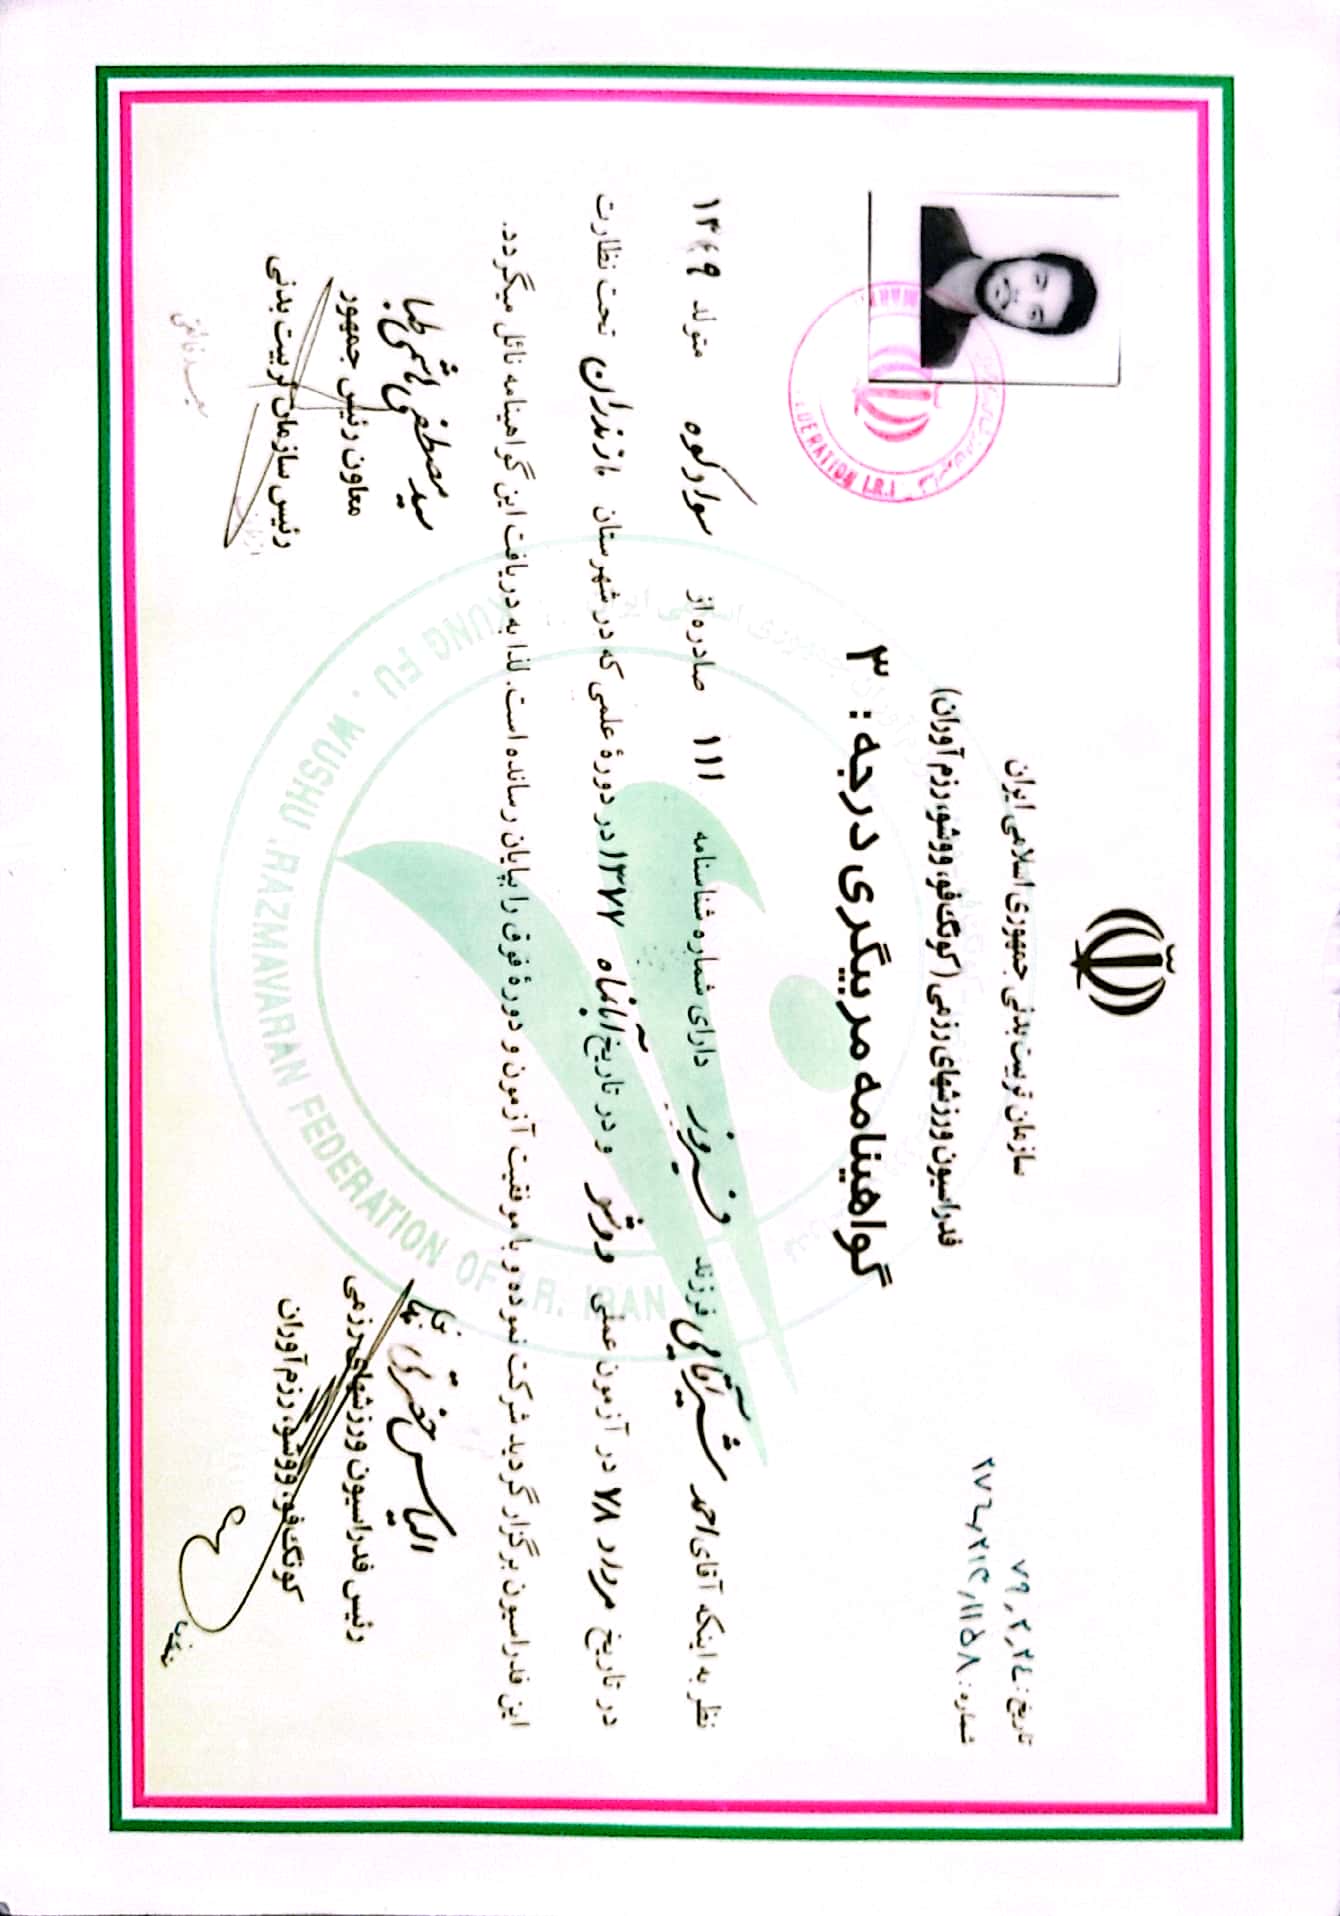 سازمان تربیت بدنی جمهوری اسلامی ایران
فدراسیون ورزشهای رزمی (کونگ فو، ووشو، رزم آوران)
تاریخ: ۷۹٫۲٫۲٤
شماره: ۲۷۶٫۲۱۴٫۱۱۵۸
گواهینامه مربیگری درجه: ۳
نظر به اینکه آقای احمد شیرآقایی فرزند فیروز دارای شماره شناسنامه ۱۱۱ صادره از سوادکوه متولد ۱۳۴۹
در تاریخ مرداد ۷۸ در آزمون عملی ووشو و در تاریخ آبانماه ۱۳۷۷ در دورهٔ علمی که در شهرستان مازندران تحت نظارت
این فدراسیون برگزار گردید شرکت نموده و با موفقیت آزمون و دورهٔ فوق را بپایان رسانده است. لذا به دریافت این گواهینامه نائل میگردد.
الیاس حضرتی
رئیس فدراسیون ورزشهای رزمی
کونگ فو، ووشو، رزم آوران
سید مصطفی هاشمی طبا
معاون رئیس جمهور
رئیس سازمان تربیت بدنی
KUNG FU . WUSHU .RAZMAVARAN FEDERATION OF I.R. IRAN
FEDERATION I.R.I